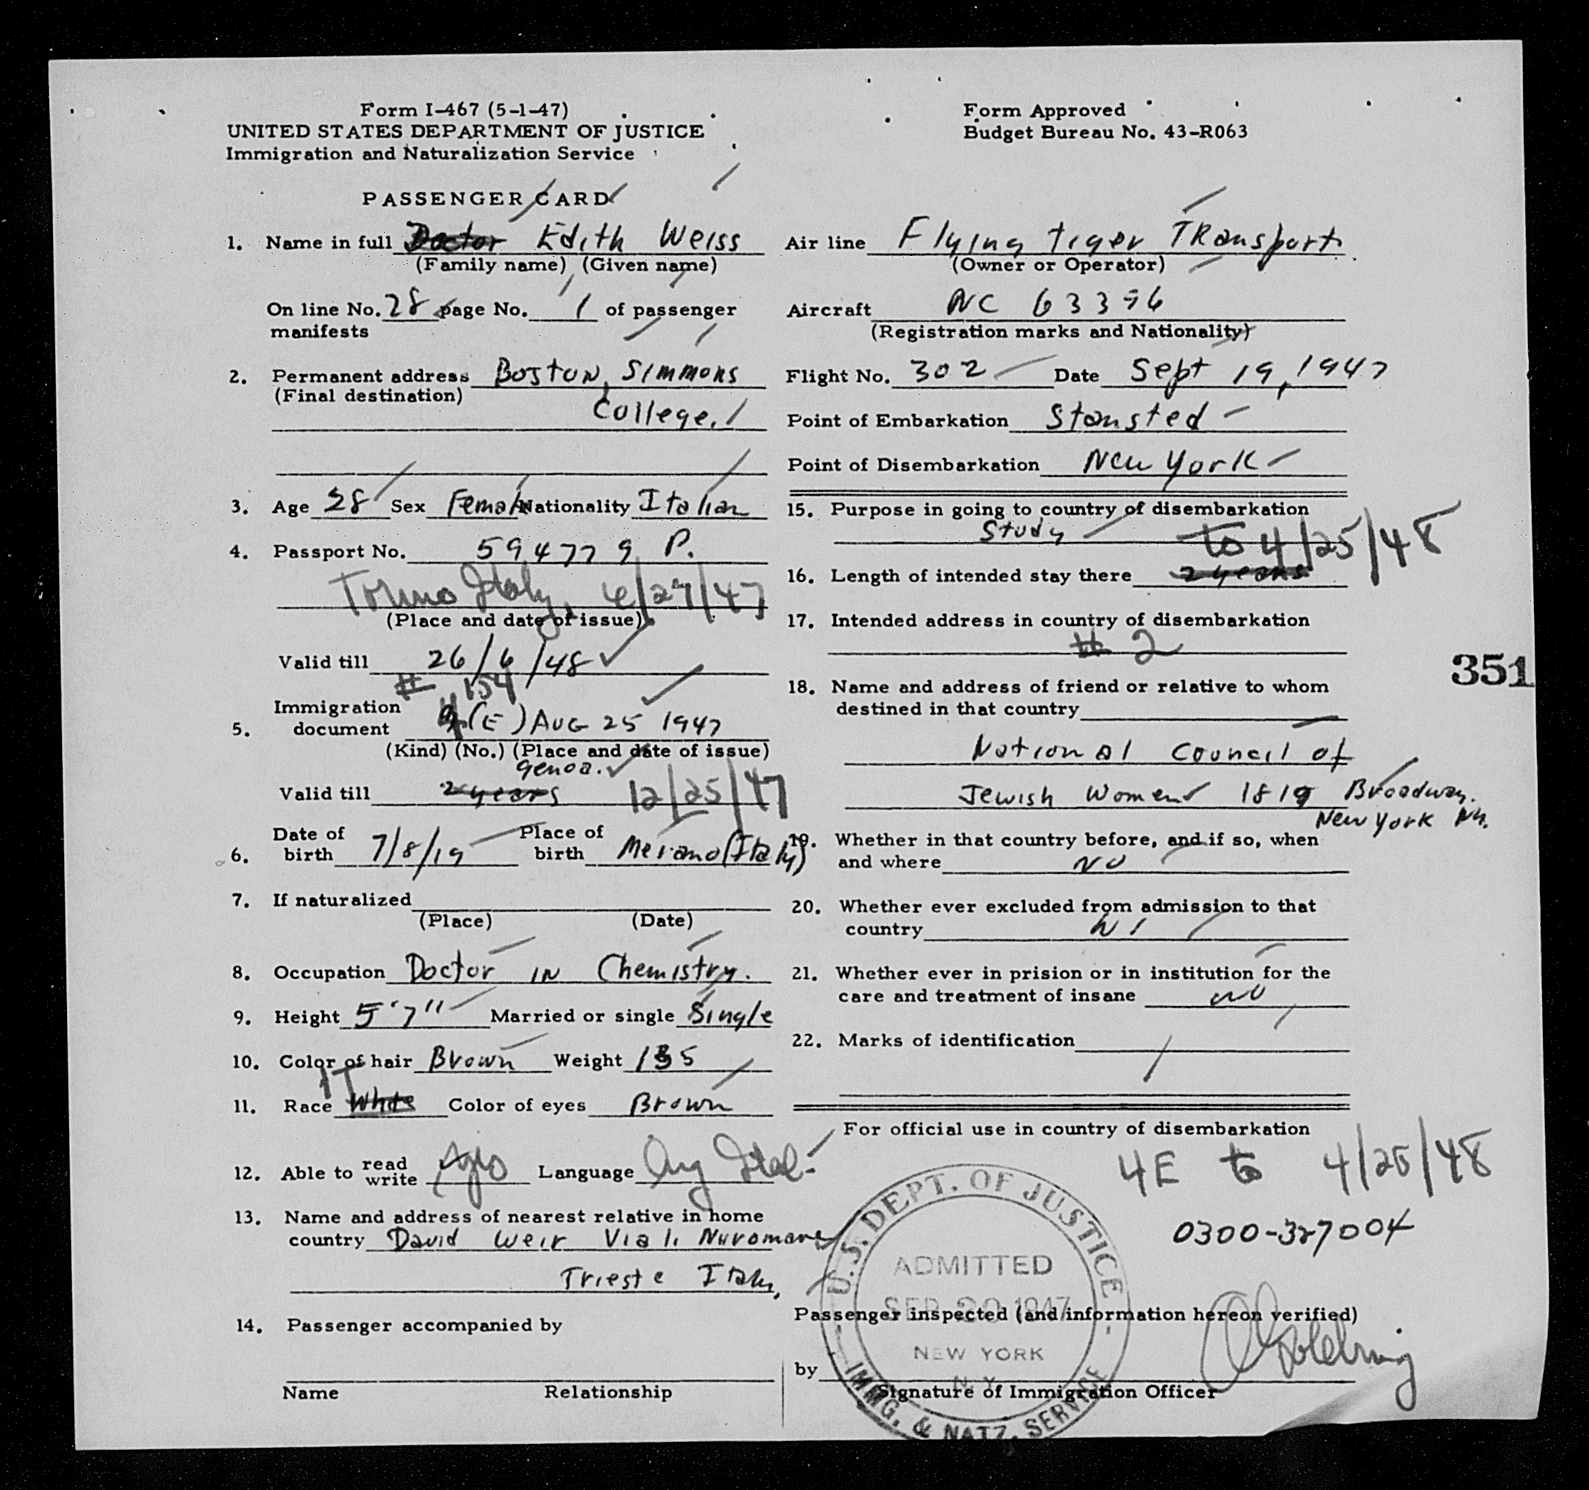 Form I-467 (5-1-47)
UNITED STATES DEPARTMENT OF JUSTICE
Immigration and Naturalization Service
PASSENGER CARD
1. Name in full Doctor Edith Weiss
(Family name) (Given name)
On line No. 28 page No. 1 of passenger
manifests
2. Permanent address Boston, Simmons
(Final destination) College.
3. Age 28 Sex Female Nationality Italian
4. Passport No. 594779 P.
Torino Italy, 6/27/47
(Place and date of issue)
Valid till 26/6/48
# 154
Immigration
5. document 4(E) AUG 25 1947
(Kind) (No.) (Place and date of issue)
genoa.
Valid till 2 years 12/25/47
6. Date of birth 7/8/19 Place of birth Merano (Italy)
7. If naturalized
(Place) (Date)
8. Occupation Doctor in Chemistry.
9. Height 5'7" Married or single Single
10. Color of hair Brown Weight 135
11. Race White IT Color of eyes Brown
12. Able to read write Language Ital.
13. Name and address of nearest relative in home
country David Weir
Trieste Italy,
14. Passenger accompanied by
Name Relationship
Form Approved
Budget Bureau No. 43-R063
Air line Flying tiger TRansport
(Owner or Operator)
Aircraft NC 63396
(Registration marks and Nationality)
Flight No. 302 Date Sept 19, 1947
Point of Embarkation Stansted
Point of Disembarkation New York
15. Purpose in going to country of disembarkation
Study
to 4/25/48
16. Length of intended stay there 2 years
17. Intended address in country of disembarkation
# 2
18. Name and address of friend or relative to whom
destined in that country
National Council of
Jewish Women 1819 Broadway.
New York NY.
19. Whether in that country before, and if so, when
and where NO
20. Whether ever excluded from admission to that
country
21. Whether ever in prision or in institution for the
care and treatment of insane NO
22. Marks of identification
For official use in country of disembarkation
4E to 4/25/48
0300-327004
U.S. DEPT. OF JUSTICE
ADMITTED
SEP 20 1947
NEW YORK
N.Y.
IMMG. & NATZ. SERVICE
Passenger inspected (and information hereon verified)
by
Signature of Immigration Officer
351